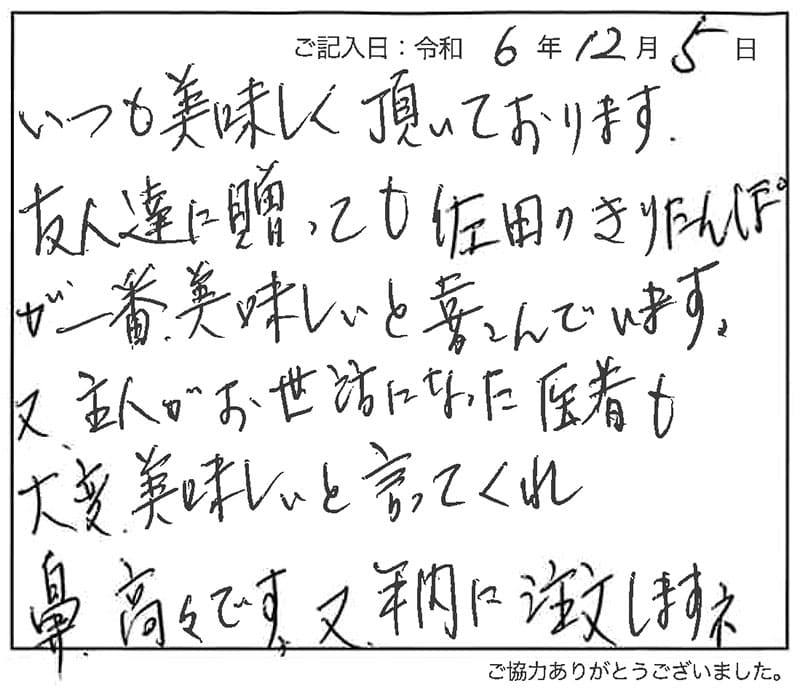 ご記入日：令和 6 年 12 月 5 日
いつも美味しく頂いております.
友人達に贈っても佐田のきりたんぽ
が一番、美味しいと喜こんでいます。
又、主人がお世話になった医者も
大変、美味しいと言ってくれ
鼻、高々です。又、年内に注文しますネ
ご協力ありがとうございました。